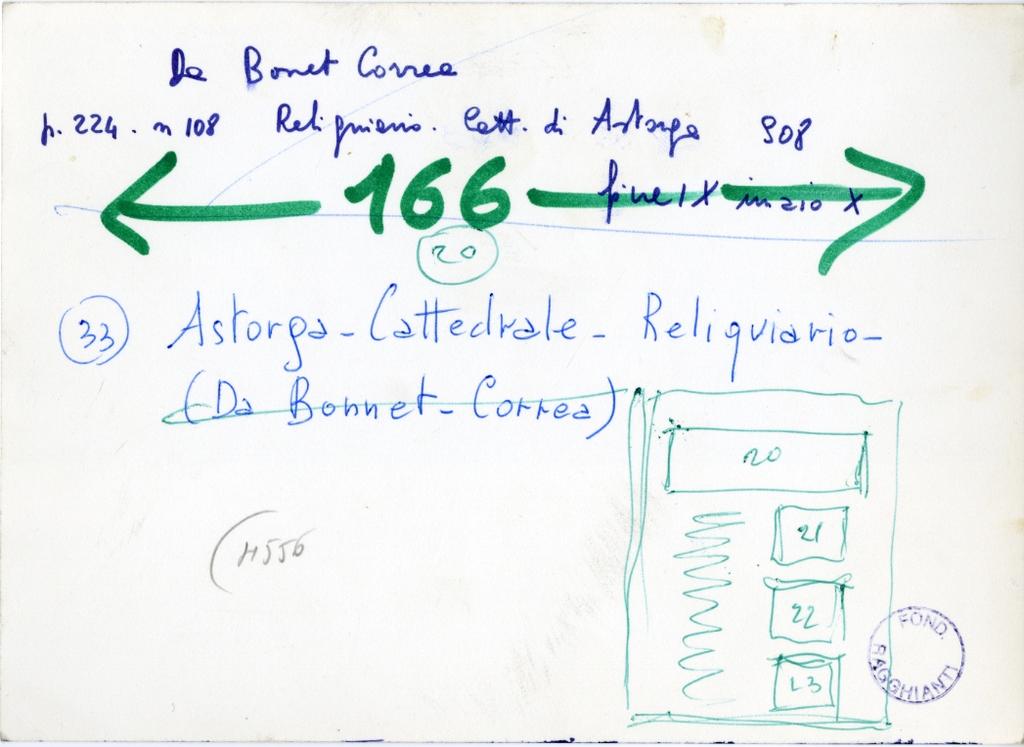 Da Bonet Correa
p. 224. n 108 Reliquiario. Catt. di Astorga 908
166 fine IX inizio X
20
33 Astorga - Cattedrale - Reliquiario -
(Da Bonnet - Correa)
20
21
4556
22
23
FOND. RAGGHIANTI